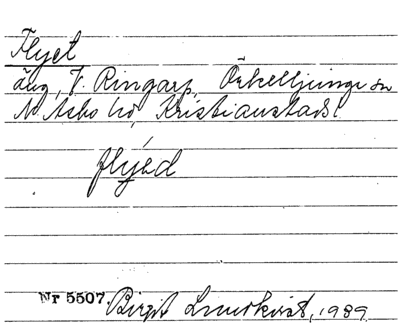 Flyet
äng, V. Ringarp, Örkelljunga sn
N. Åsbo hd, Kristianstads l.
flyéd
Nr 5507. Birgit Lundkvist, 1989